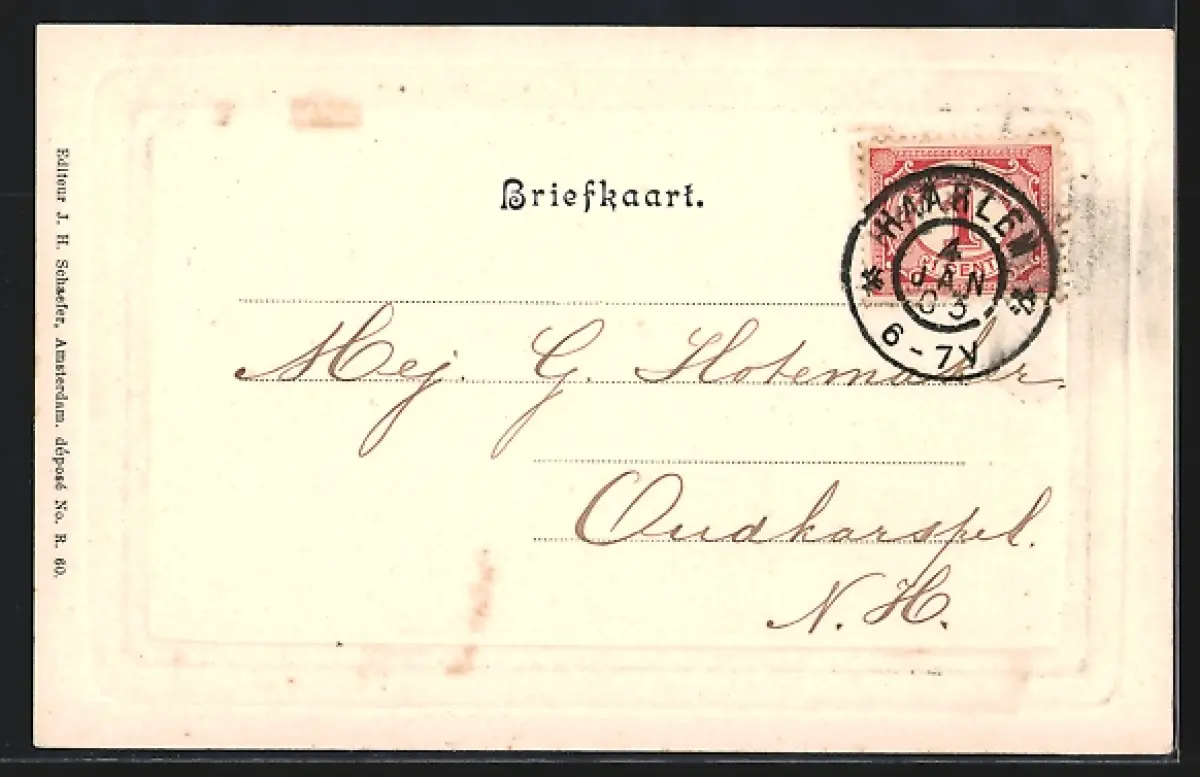 Briefkaart.
1
CENT
HAARLEM
4
JAN
03
6-7V
Mej. G. Hotemaker.
Oudkarspel.
N.H.
Editeur J. H. Schaefer, Amsterdam. déposé No. R. 60.